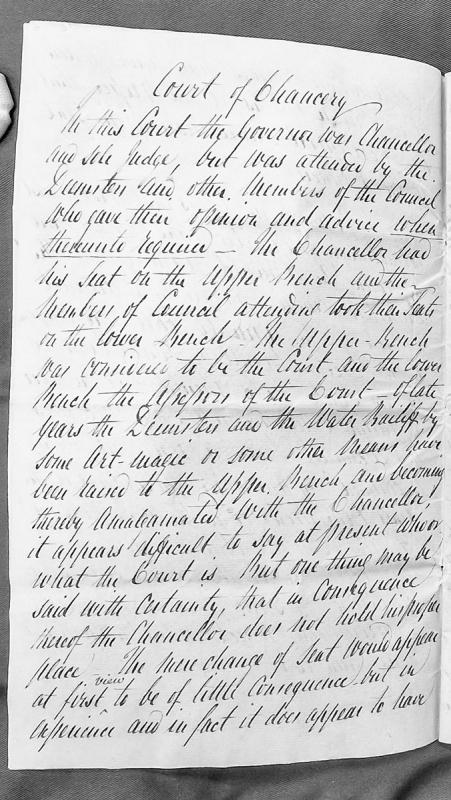 Court of Chancery
In this Court the Governor was Chancellor
and sole Judge, but was attended by the
Deemsters and other Members of the Council
who gave their opinion and advice when
thereunto required — The Chancellor had
his Seat on the Upper Bench and the
Members of Council attending took their Seats
on the lower Bench The Upper-Bench
was considered to be the Court and the lower
Bench the Assessors of the Court — of late
years the Deemsters and the Water Bailiff by
some Art-magic or some other means have
been raised to the Upper Bench and becoming
thereby Amalgamated with the Chancellor,
it appears difficult to say at present who or
what the Court is But one thing may be
said with certainty, that in Consequence
thereof the Chancellor does not hold his proper
place The mere change of Seat would appear
at first view to be of little Consequence but in
experience and in fact it does appear to have